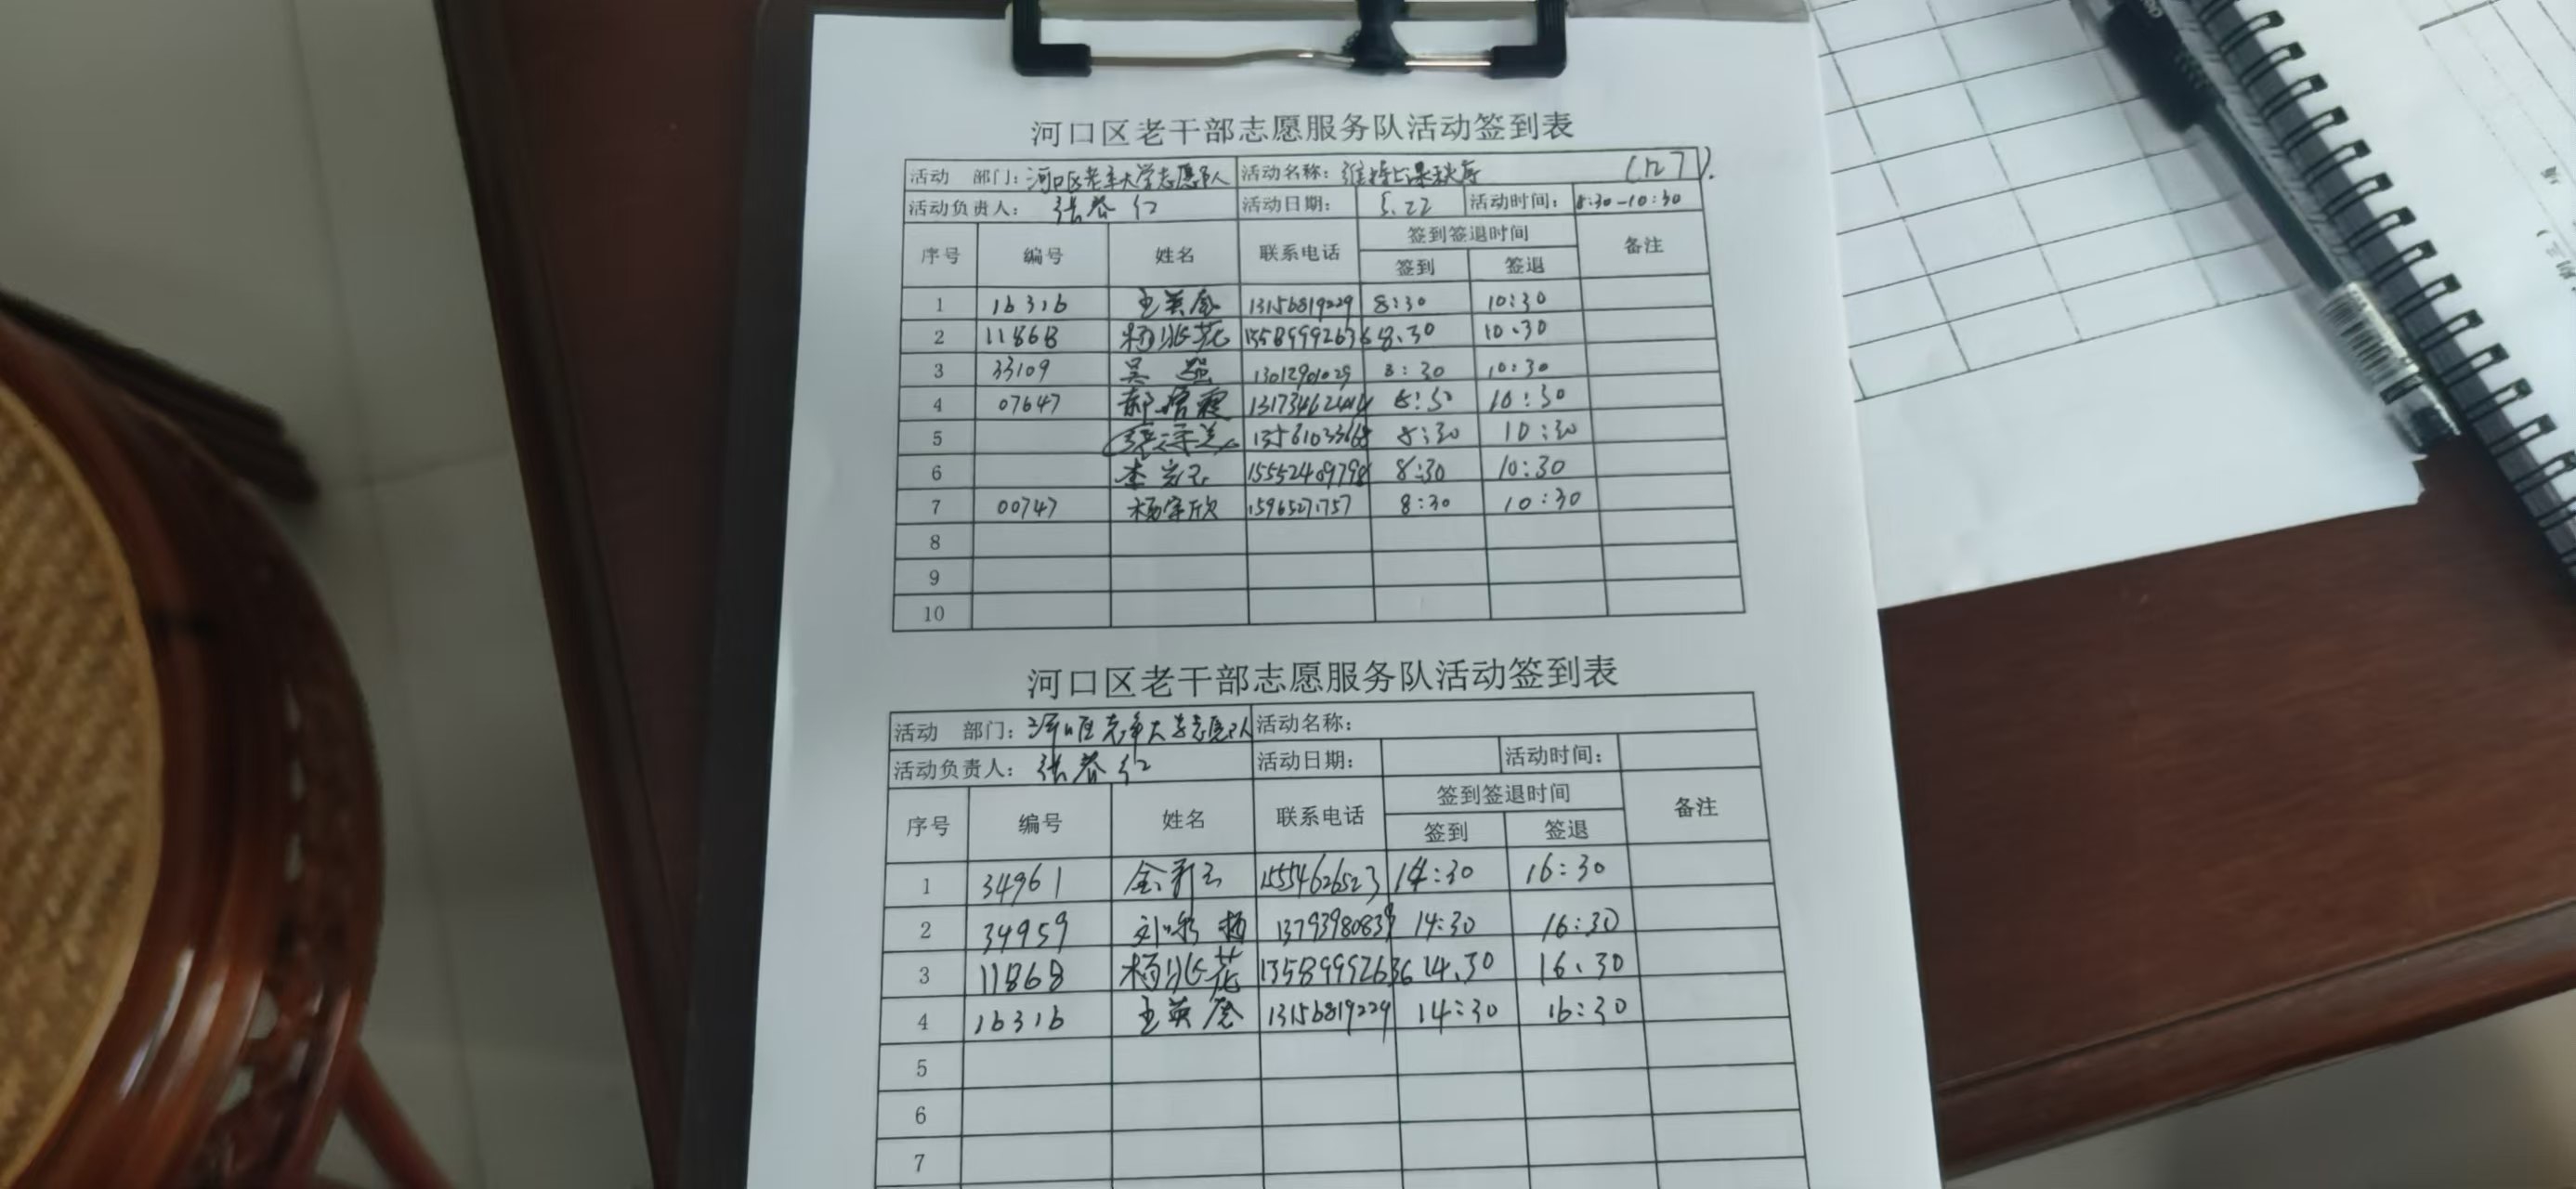 河口区老干部志愿服务队活动签到表
活动 部门: 河口区老年大学志愿队 活动名称: 维持上课秩序
活动负责人: 张春红 活动日期: 5.22 活动时间: 8:30-10:30
序号 编号 姓名 联系电话 签到签退时间 备注
签到 签退
1 16316 王英 13156819229 8:30 10:30
2 11868 杨 花 8.30 10.30
3 33109 吴 8:30 10:30
4 07647 郝 霞 8:30 10:30
5 8:30 10:30
6 李 8:30 10:30
7 00747 杨 欣 8:30 10:30
8
9
10
河口区老干部志愿服务队活动签到表
活动 部门: 河口区老年大学志愿队 活动名称:
活动负责人: 张春红 活动日期: 活动时间:
序号 编号 姓名 联系电话 签到签退时间 备注
签到 签退
1 34961 金 15554626523 14:30 16:30
2 34959 刘 杨 13793980839 14:30 16:30
3 11868 杨 花 13589992636 14.30 16.30
4 16316 王英 13156819229 14:30 16:30
5
6
7